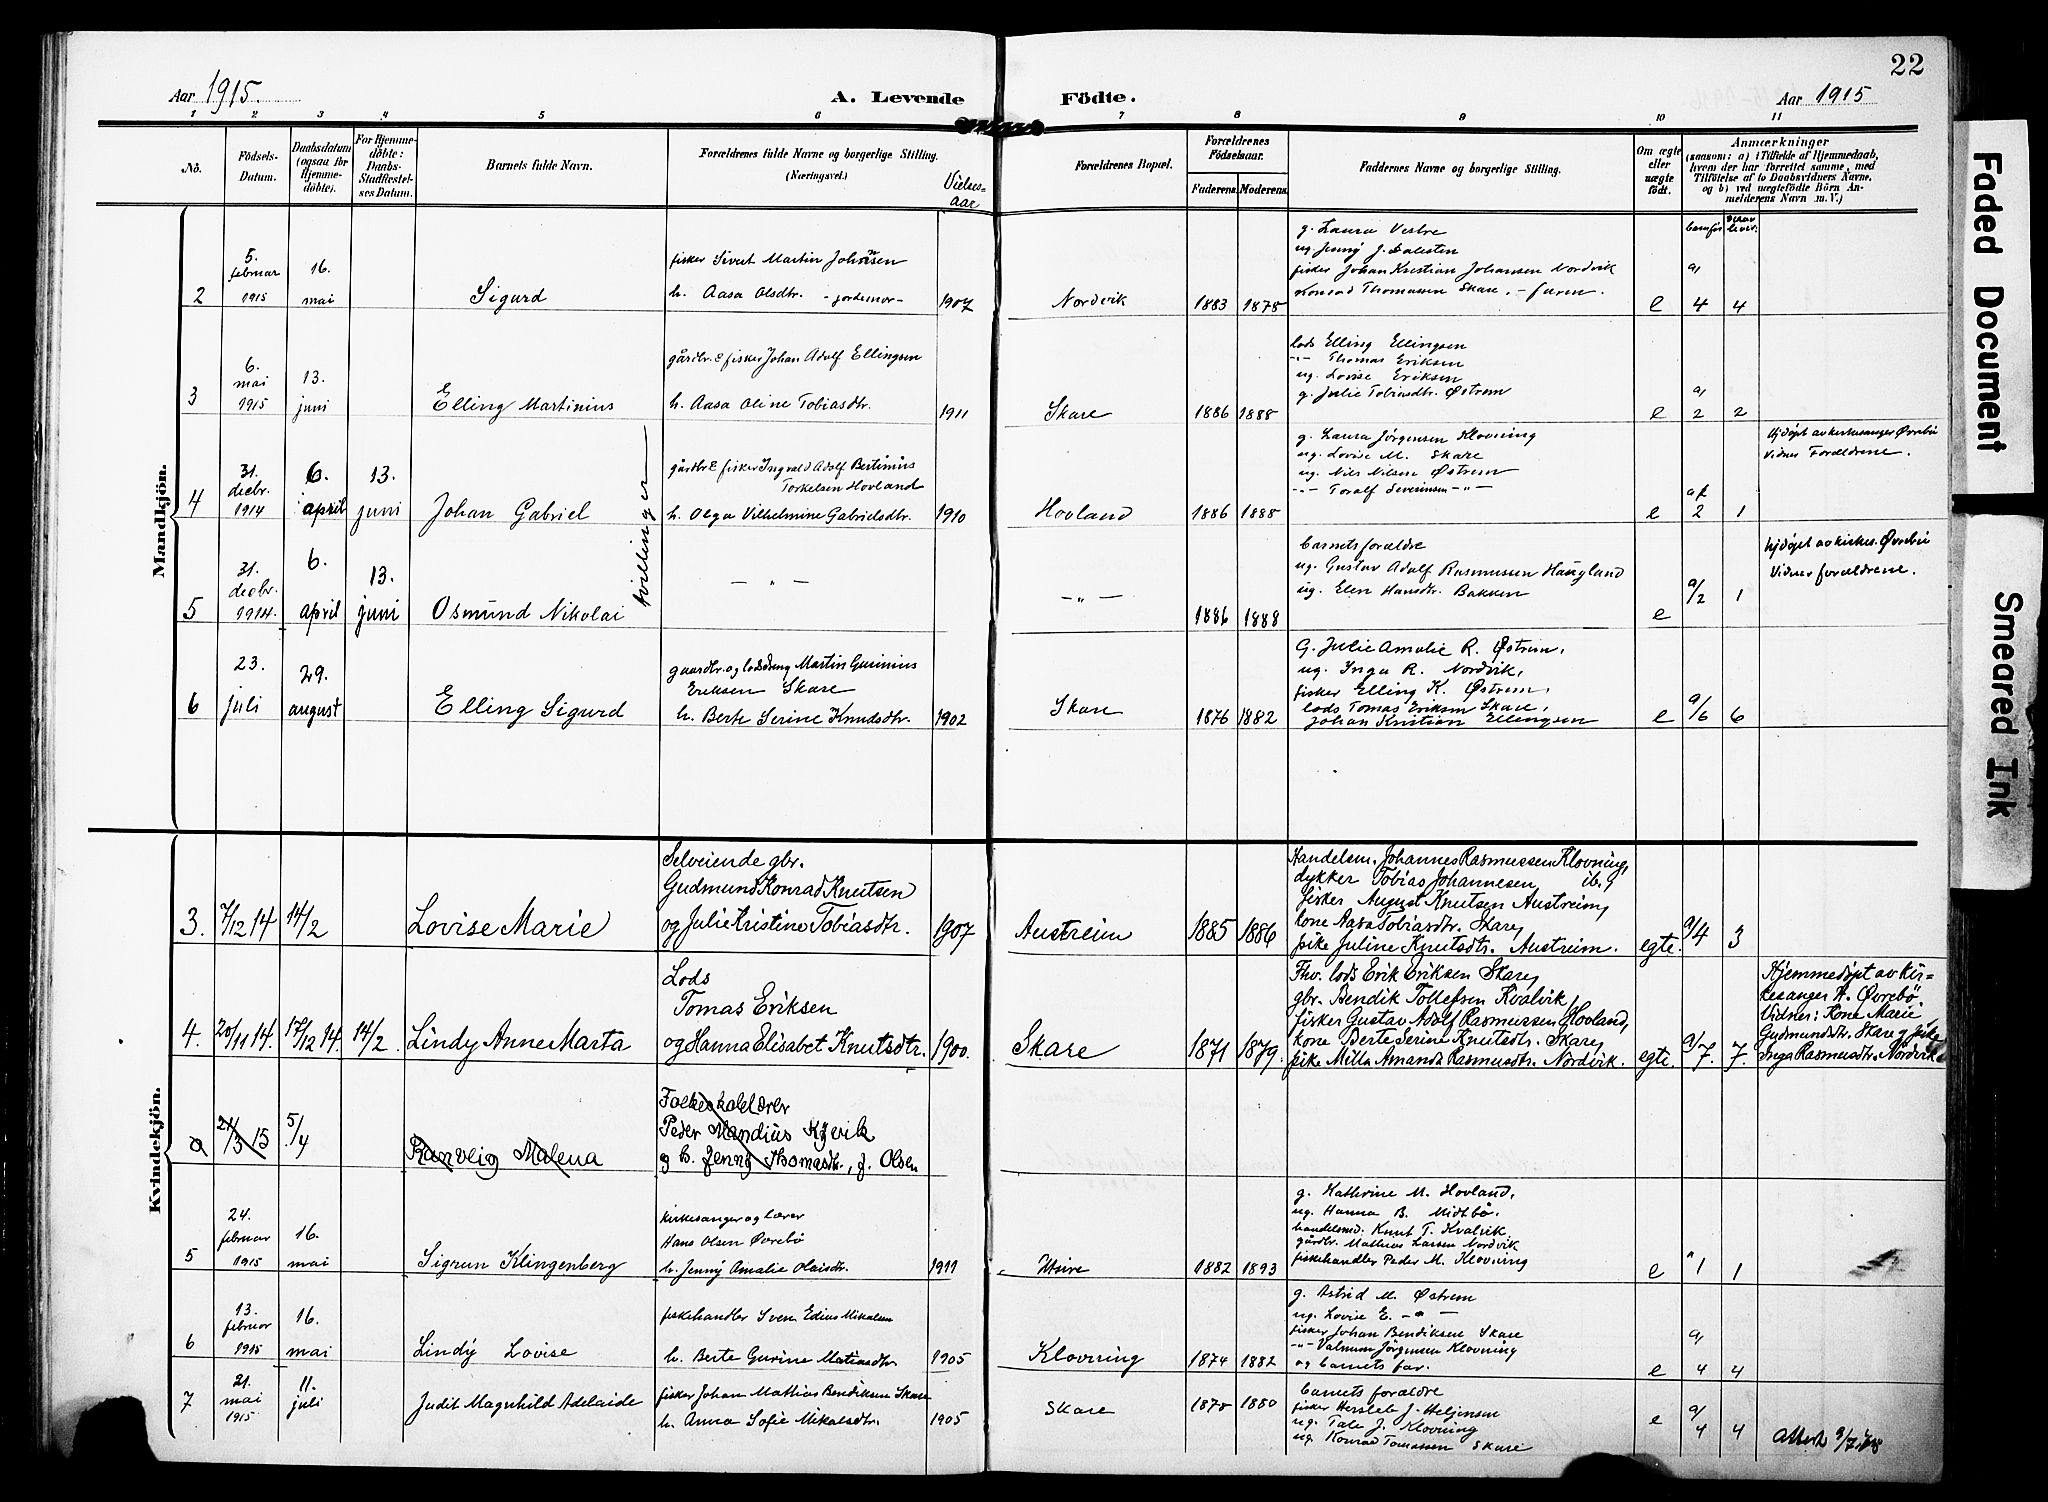 22
Aar 1915.
A. Levende Fødte.
Aar 1915
1 2 3 4 5 6 7 8 9 10 11
No.
Fødsels-
Datum.
Daabsdatum
(ogsaa for
Hjemme-
døbte).
For Hjemme-
døbte:
Daabs-
Stadfæstel-
ses Datum.
Barnets fulde Navn.
Forældrenes fulde Navne og borgerlige Stilling.
(Næringsvei.)
Vielses-
aar
Forældrenes Bopæl.
Forældrenes
Fødselsaar.
Faderens.
Moderens.
Faddernes Navne og borgerlige Stilling.
Om ægte
eller
uægte
født.
Anmærkninger
(saasom: a) i Tilfælde af Hjemmedaab,
hvem der har forrettet samme, med
Tilføielse af to Daabsvidners Navne,
og b) ved uægtefødte Børn An-
melderens Navn m. V.)
Mandkjön.
2
5.
februar
1915
16.
mai
Sigurd
fisker Sivert Martin Johnsen
h. Aasa Olsdtr. - jordemor -
1907
Nordvik
1883 1878
g. Laura Vestre
ug. Jenny J. Dalesten
fisker Johan Kristian Johansen Nordvik
Konrad Thomassen Skare. - faren.
e
a/
4 4
3
6.
mai
1915
13.
juni
Elling Martinius
gårdbr. & fisker Johan Adolf Ellingsen
h. Aasa Oline Tobiasdtr.
1911
Skare
1886 1888
lods Elling Ellingsen
-"- Thomas Eriksen
ug. Lovise Eriksen
g. Julie Tobiasdtr. Østrem
e
a/
2 2
4
31.
decbr.
1914
6.
april
13.
juni
Johan Gabriel
tvillinger
gårdbr & fisker Ingvald Adolf Bertinius
Torkelsen Hovland
h. Olga Vilhelmine Gabrielsdtr.
1910
Hovland
1886 1888
g. Laura Jørgensen Klovning
ug. Lovise M. Skare
ug. Nils Nilsen Østrem
-"- Toralf Severinsen -"-
e
a/
2 1
Hjdøpt av kirkesanger Øvrebø
Vidner Forældrene.
5
31.
decbr.
1914.
6.
april
13.
juni
Osmund Nikolai
- " -
- " -
1886 1888
barnets forældre
ug. Gustav Adolf Rasmussen Haugland
ug. Elen Hansdtr. Bakken
e
a/2 1
Hjdøpt av kirkes. Øvrebø
Vidner forældrene.
6
23.
juli
29.
august
Elling Sigurd
gaardbr. og lodsdreng Martin Gurinius
Eriksen Skare
h. Berte Serine Knudsdtr.
1902
Skare
1876 1882
G. Julie Amalie R. Østrem,
ug. Inga R. Nordvik,
fisker Elling K. Østrem,
lods Tomas Eriksen Skare,
Johan Kristian Ellingsen
e
a/6 6
Kvindekjön.
3.
7/12 14
14/2
Lovise Marie
Selveiende gbr.
Gudmund Konrad Knutsen
og Julie Kristine Tobiasdtr.
1907
Austreim
1885 1886
Handelsm. Johannes Rasmussen Klovning,
dykker Tobias Johannesen ib.,
fisker August Knutsen Austreim,
kone Aasa Tobiasdtr. Skare,
pike Juline Knutsdtr. Austreim.
egte.
a/4 3
4.
20/11 14.
17/12 14.
14/2.
Lindy Anne Marta
Lods
Tomas Eriksen
og Hanna Elisabet Knutsdtr.
1900.
Skare
1871 1879.
Fhv. lods Erik Eriksen Skare,
gbr. Bendik Tollefsen Kvalvik,
fisker Gustav Adolf Rasmussen Hovland,
kone Berte Serine Knutsdtr. Skare,
pike Milla Amanda Rasmusdtr. Nordvik.
egte.
a/7. 7.
Hjemmedøpt av kir-
kesanger H. Øvrebø.
Vidner: Kone Marie
Gudmundsdtr. Skare og pike
Inga Rasmusdtr. Nordvik
21/3 15
5/4
Ranveig Malena
Folkeskolelærer
Peder Mandius Kyvik
og h. Jenny Thomasdtr., f. Olsen
5
24.
februar
1915
16.
mai
Sigrun Klingenberg
kirkesanger og lærer
Hans Olsen Øvrebø
h. Jenny Amalie Olaisdtr.
1911
Utsire
1882 1893
g. Kathrine M. Hovland,
ug. Hanna B. Midtbø.
handelsmd. Knut T. Kvalvik.
gårdbr. Mathias Larsen Nordvik
fiskehandler Peder M. Klovning
e
1 1
6
13.
februar
1915
16.
mai
Lindy Lovise
fiskehandler Sven Edias Mikalsen
h. Berte Gurine Matiasdtr.
1905
Klovning
1874 1882
g. Astrid M. Østrem
ug. Lovise E. - " -
fisker Johan Bendiksen Skare
-"- Valmum Jørgensen Klovning
og barnets far.
e
a/
4 4
7
21.
mai
1915
11.
juli
Judit Magnhild Adelaide
fisker Johan Mathias Bendiksen Skare
h. Anna Sofie Mikalsdtr.
1905
Skare
1878 1880
barnets forældre
fisker Hersleb J. Heljensen
ug. Tale J. Klovning
ug. Konrad Tomassen Skare
e
a/
4 4
Attest 9/7
Faded Document
Smeared Ink